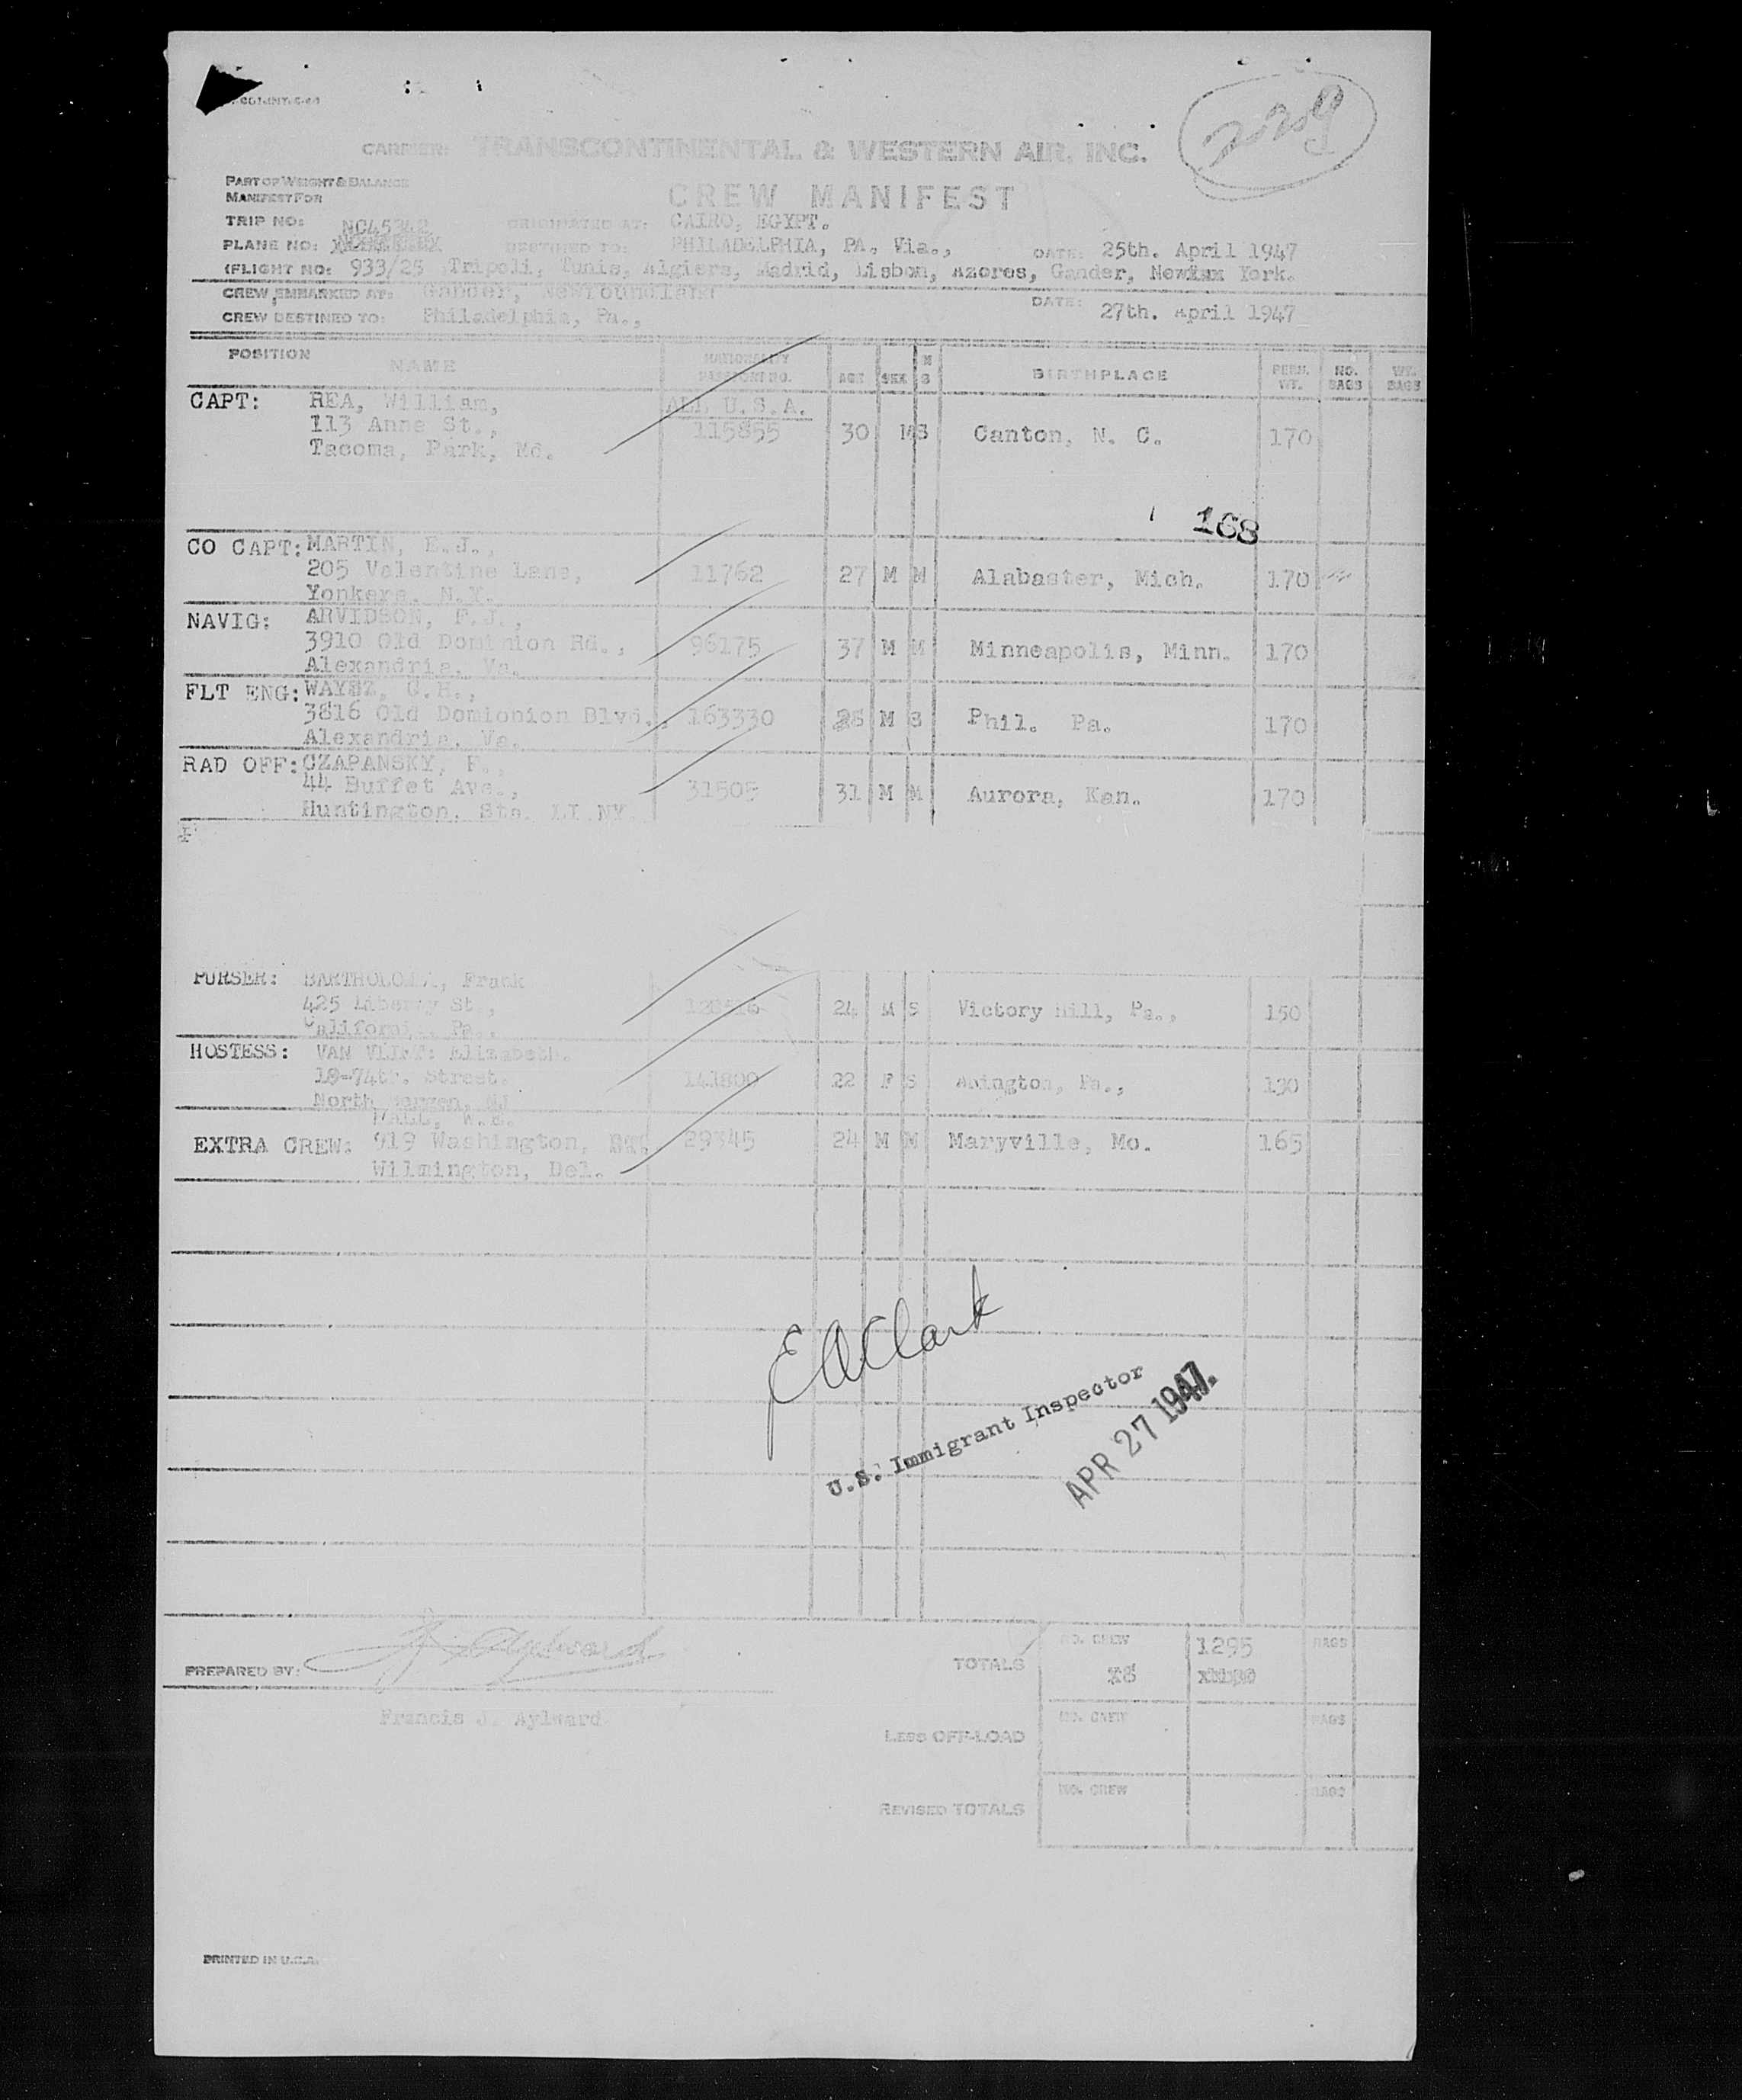 229
CARRIER: TRANSCONTINENTAL & WESTERN AIR, INC.
PART OF WEIGHT & BALANCE
MANIFEST FOR
CREW MANIFEST
TRIP NO: NC45342 ORIGINATED AT: CAIRO, EGYPT.
PLANE NO: DESTINED TO: PHILADELPHIA, PA. Via., DATE: 25th. April 1947
(FLIGHT NO: 933/25 Tripoli, Tunis, Algiers, Madrid, Lisbon, Azores, Gander, New York.
CREW EMBARKED AT: Gander, Newfoundland DATE:
CREW DESTINED TO: Philadelphia, Pa., 27th. April 1947
POSITION NAME NATIONALITY PASSPORT NO. AGE SEX M S BIRTHPLACE PERS. WT. NO. BAGS WT. BAGS
CAPT: REA, William, ALL U.S.A.
113 Anne St., 115855 30 M S Canton, N. C. 170
Tacoma, Park, Md.
168
CO CAPT: MARTIN, E.J.,
205 Valentine Lane, 11762 27 M M Alabaster, Mich. 170
Yonkers, N.Y.
NAVIG: ARVIDSON, F.J.,
3910 Old Dominion Rd., 96175 37 M M Minneapolis, Minn. 170
Alexandria, Va.
FLT ENG: WAYSZ, G.H.,
3816 Old Domionion Blvd., 163330 M S Phil. Pa. 170
Alexandria, Va.
RAD OFF: CZAPANSKY, F.,
44 Buffet Ave., 31505 31 M M Aurora, Kan. 170
Huntington, Sta. LI NY
PURSER: Frank
425 Liberty St., 24 M S Victory Hill, Pa., 150
California, Pa.,
HOSTESS: VAN Elizabeth.
18-74th. Street. 141800 22 F S Abington, Pa., 130
North Bergen, NJ
HALL, W.E.
EXTRA CREW: 919 Washington, ST. 29345 24 M M Maryville, Mo. 165
Wilmington, Del.
E A Clark
U.S. Immigrant Inspector
APR 27 1947.
F. J. Aylward
PREPARED BY:
Francis J. Aylward
TOTALS NO. CREW 8 1295 BAGS
LESS OFF-LOAD NO. CREW BAGS
REVISED TOTALS NO. CREW BAGS
PRINTED IN U.S.A.